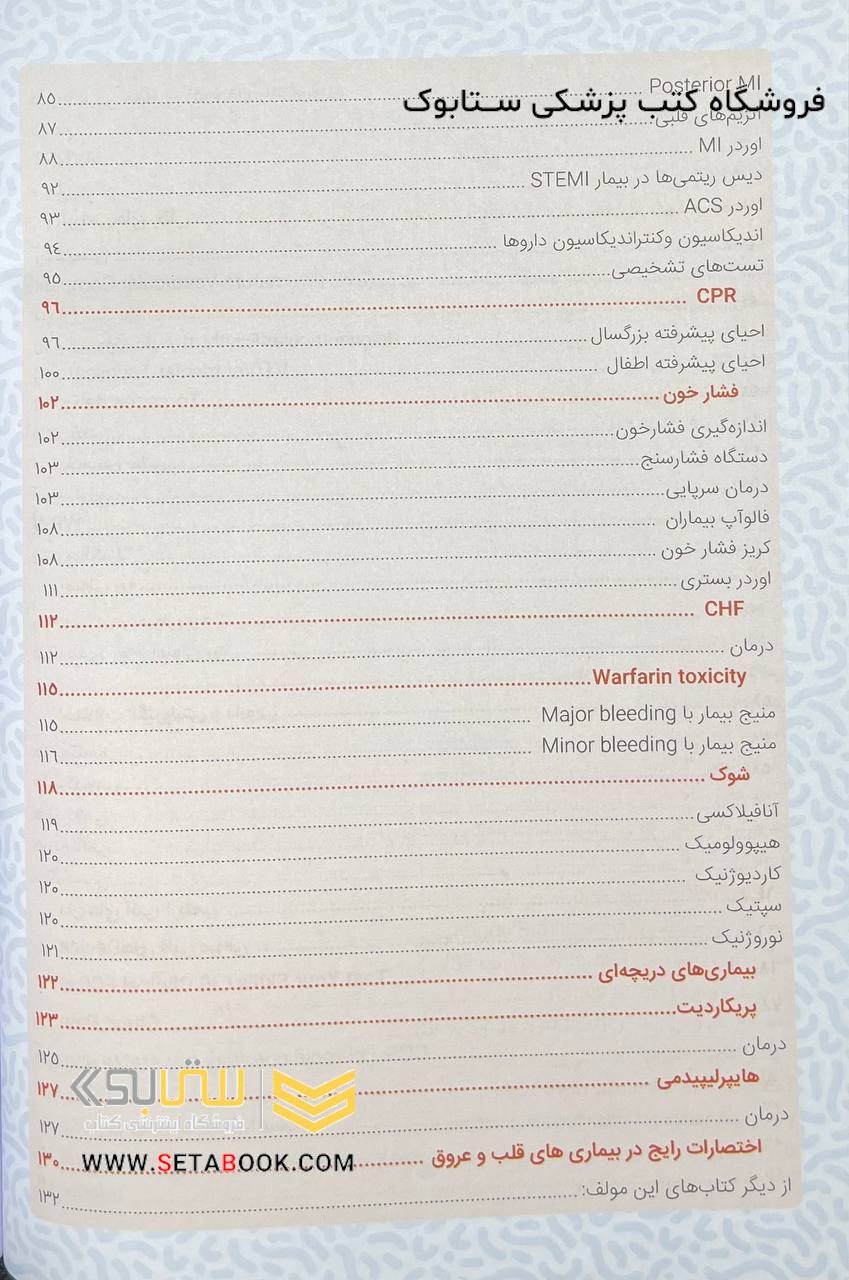 Posterior MI ........ ۸۵
فروشگاه کتب پزشکی ستابوک
آنزیم‌های قلبی ........ ۸۷
اوردر MI ........ ۸۸
دیس ریتمی‌ها در بیمار STEMI ........ ۹۲
اوردر ACS ........ ۹۳
اندیکاسیون وکنتراندیکاسیون داروها ........ ۹٤
تست‌های تشخیصی ........ ۹۵
CPR ........ ۹٦
احیای پیشرفته بزرگسال ........ ۹٦
احیای پیشرفته اطفال ........ ۱۰۰
فشار خون ........ ۱۰۲
اندازه‌گیری فشارخون ........ ۱۰۲
دستگاه فشارسنج ........ ۱۰۳
درمان سرپایی ........ ۱۰۳
فالوآپ بیماران ........ ۱۰۸
کریز فشار خون ........ ۱۰۸
اوردر بستری ........ ۱۱۱
CHF ........ ۱۱۲
درمان ........ ۱۱۲
Warfarin toxicity ........ ۱۱۵
منیج بیمار با Major bleeding ........ ۱۱۵
منیج بیمار با Minor bleeding ........ ۱۱٦
شوک ........ ۱۱۸
آنافیلاکسی ........ ۱۱۹
هیپوولومیک ........ ۱۲۰
کاردیوژنیک ........ ۱۲۰
سپتیک ........ ۱۲۰
نوروژنیک ........ ۱۲۱
بیماری‌های دریچه‌ای ........ ۱۲۲
پریکاردیت ........ ۱۲۳
درمان ........ ۱۲۵
هایپرلیپیدمی ........ ۱۲۷
درمان ........ ۱۲۷
اختصارات رایج در بیماری های قلب و عروق ........ ۱۳۰
از دیگر کتاب‌های این مولف: ........ ۱۳۲
ستابوک
فروشگاه اینترنتی کتاب
WWW.SETABOOK.COM